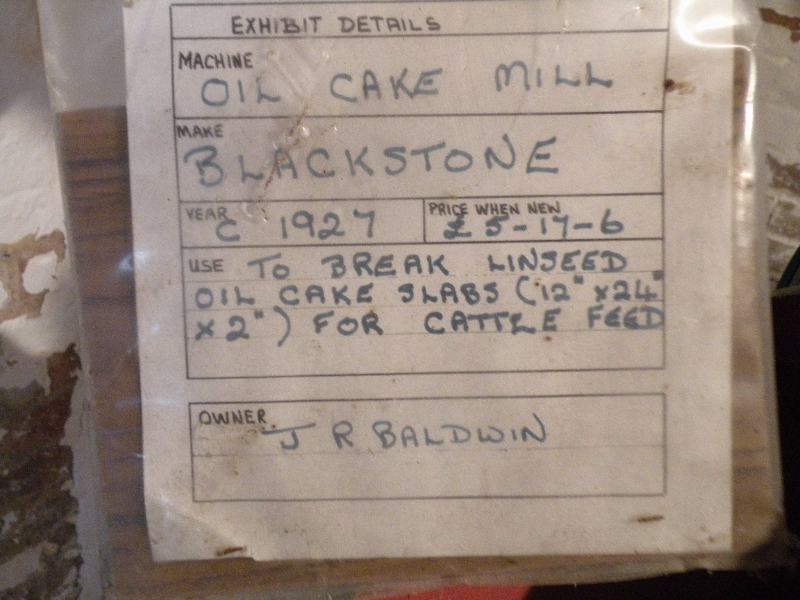 EXHIBIT DETAILS
MACHINE
OIL CAKE MILL
MAKE
BLACKSTONE
YEAR
C 1927
PRICE WHEN NEW
£5-17-6
USE TO BREAK LINSEED
OIL CAKE SLABS (12" x24"
x 2") FOR CATTLE FEED
OWNER
J R BALDWIN